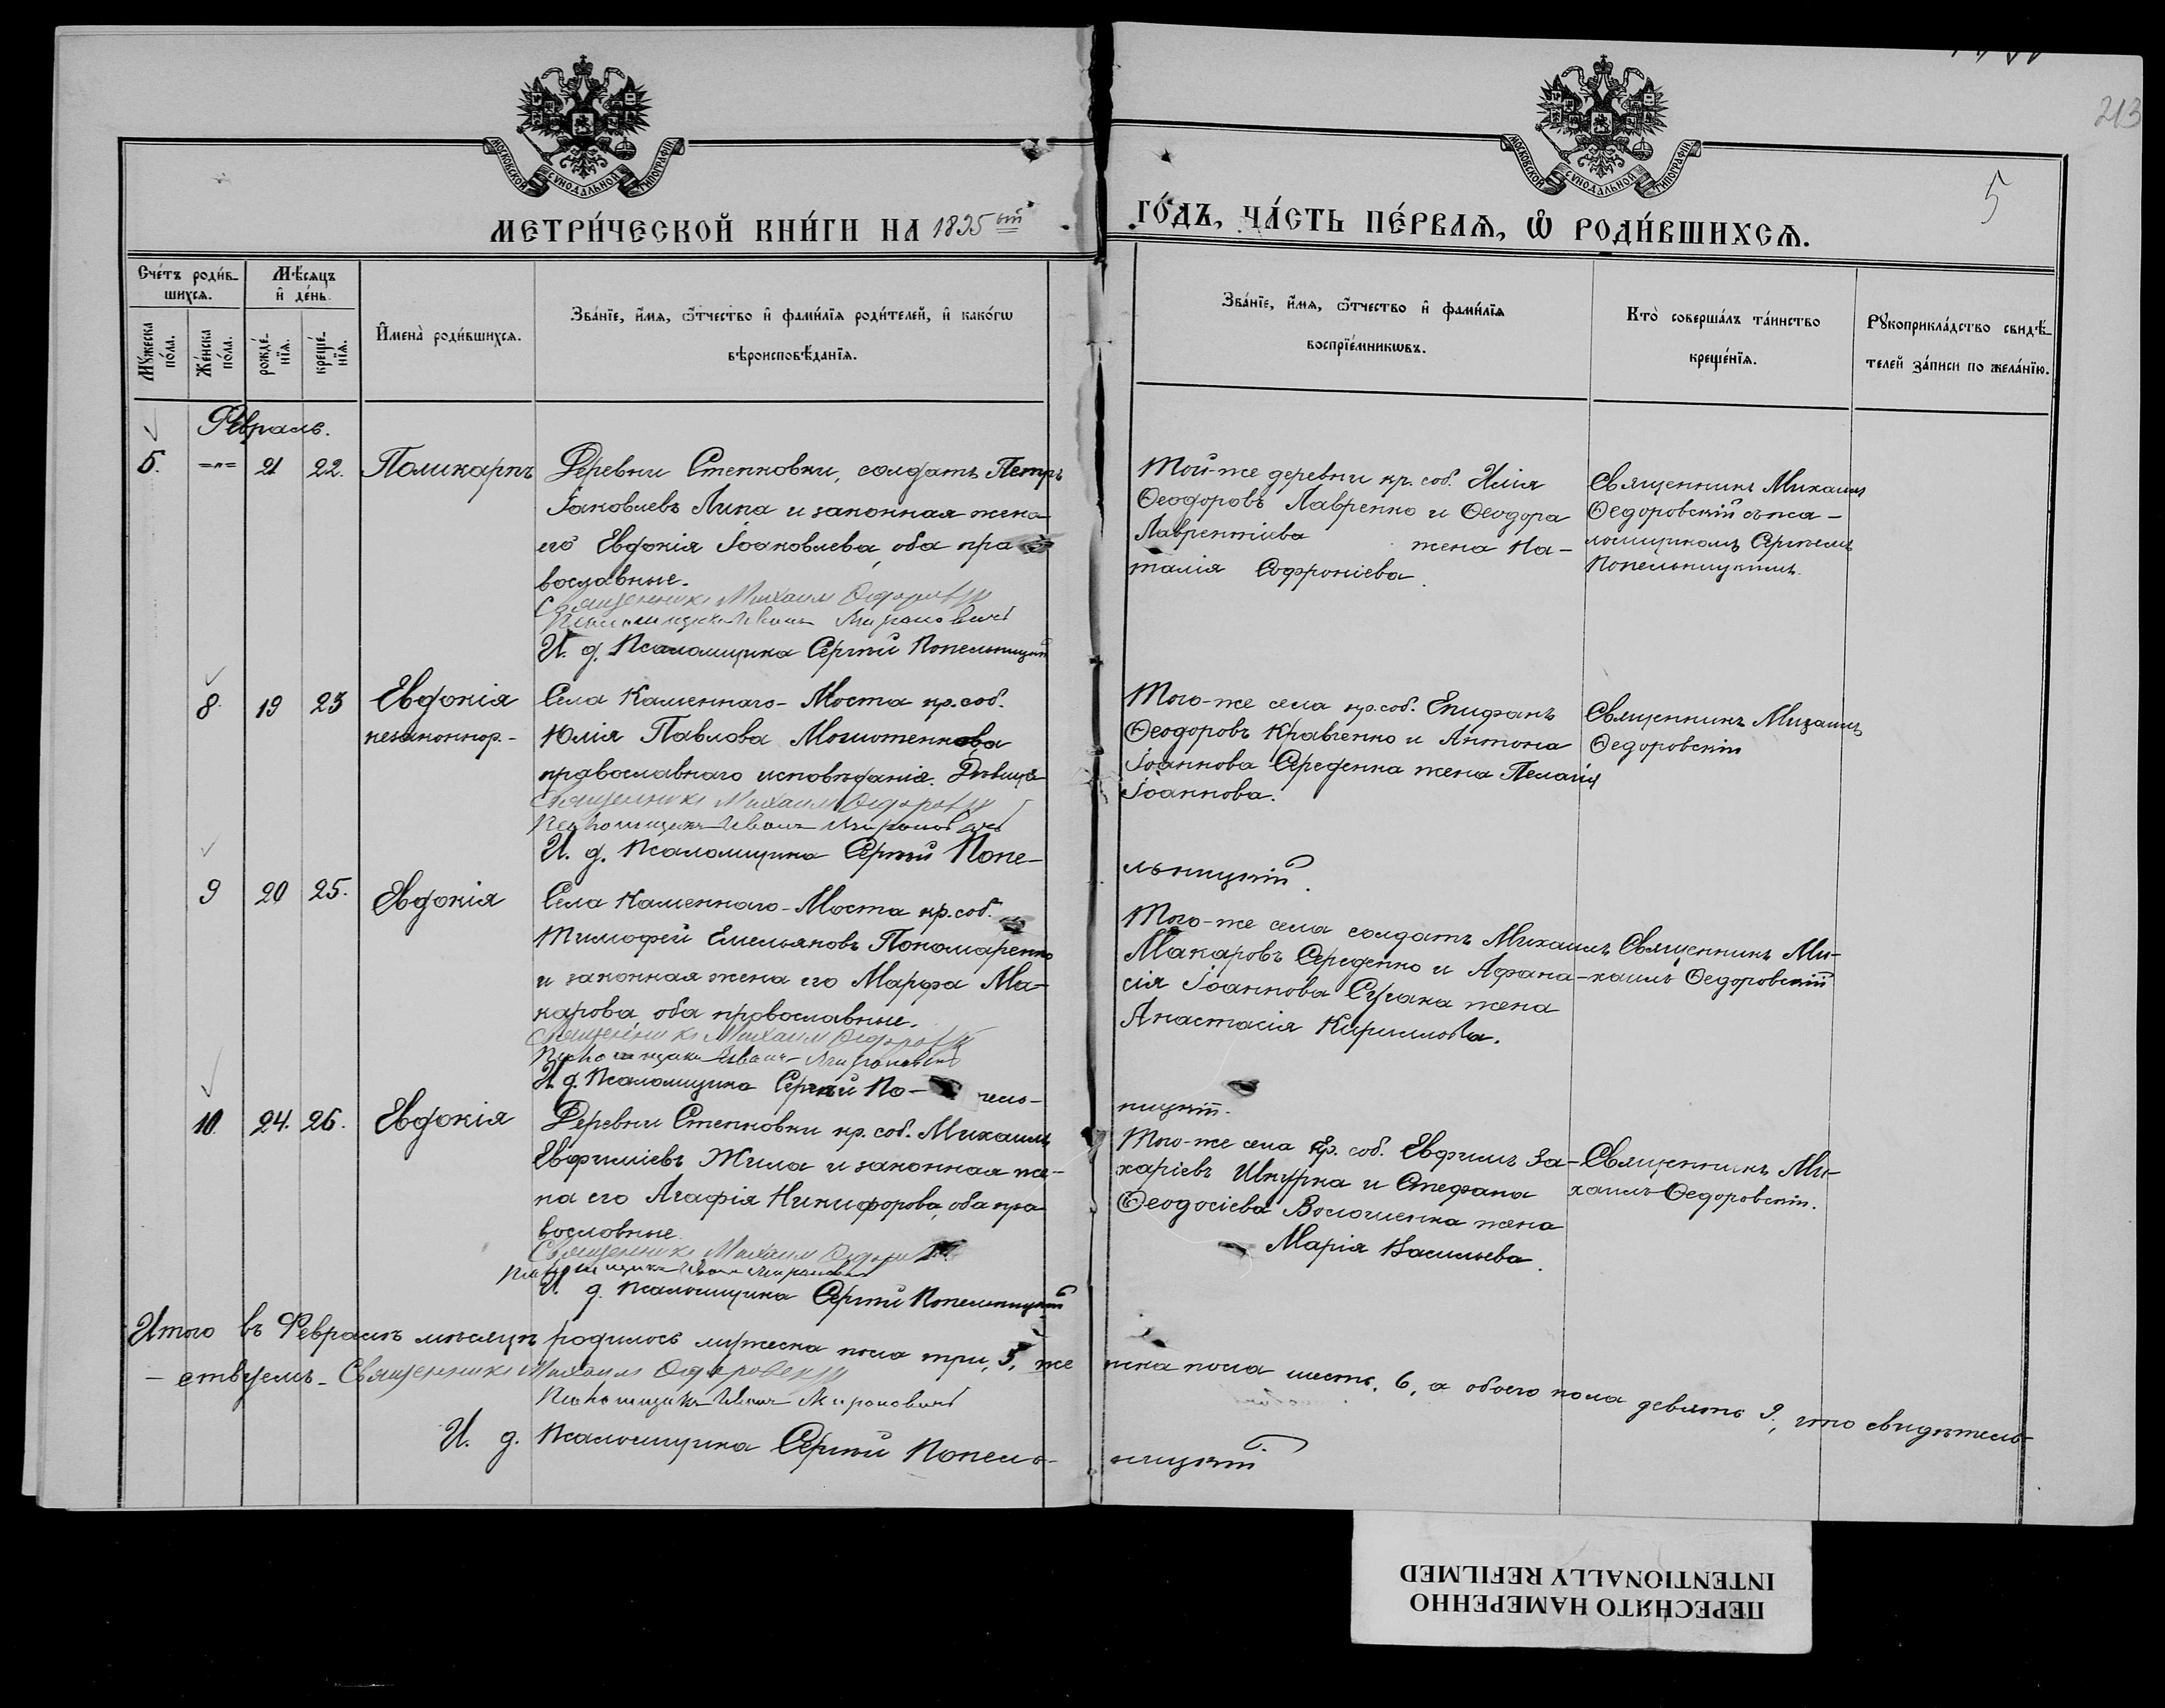 213
5
МОСКОВСКОЙ СѴНОДАЛЬНОЙ ТИПОГРАФІИ
МОСКОВСКОЙ СѴНОДАЛЬНОЙ ТИПОГРАФІИ
МЕТРИ́ЧЕСКОЙ КНИ́ГИ НА 1895 ый
ГО́ДЪ, ЧА́СТЬ ПЕ́РВАѦ, Ѡ҆ РОДИ́ВШИХСѦ.
Сче́тъ роди́в-
шихсѧ.
Мѣ́сяцъ
и҆ де́нь.
Мꙋ́жеска по́ла.
Же́нска по́ла.
рожде́-нїѧ.
креще́-нїѧ.
И҆мена̀ роди́вшихсѧ.
Зва́нїе, и҆́мѧ, ѻ҆́тчество и҆ фами́лїѧ роди́телей, и҆ како́гѡ
вѣроисповѣ́данїѧ.
Зва́нїе, и҆́мѧ, ѻ҆́тчество и҆ фами́лїѧ
воспрїе́мникѡвъ.
Кто̀ соверша́лъ та́инство
креще́нїѧ.
Рꙋкоприкла́дство свидѣ́-
телей за́писи по жела́нїю.
Февраль.
5. =„= 21 22. Поликарпъ
Деревни Степковки, солдатъ Петръ
Іаковлевъ Липа и законная жена
его Евдокія Іоаковлева, оба пра
вославные.
Священникъ Михаил Федоровскій
Псаломщикъ Иванъ Мироновичъ
И. д. Псаломщика Сергѣй Попельницкій
Той-же деревни кр. соб. Илія
Ѳеодоровъ Лавренко и Ѳеодора
Лаврентіева жена На-
талія Софроніева.
Священникъ Михаилъ
Ѳедоровскій съ пса-
ломщикомъ Сергѣемъ
Попельницкимъ.
8. 19 23 Евдокія
незаконнор.-
Села Каменнаго-Моста кр. соб.
Юлія Павлова
православнаго исповѣданія. Дѣвица
Священникъ Михаил Федоровскій
Псаломщикъ Иванъ Мироновичъ
И. д. Псаломщика Сергѣй Попе-
льницкій.
Того-же села кр. соб. Епифанъ
Ѳеодоровъ Кравченко и Антона
Іоаннова Середенка жена Пелагія
Іоаннова.
Священникъ Михаилъ
Ѳедоровскій
9 20 25. Евдокія
Села Каменнаго-Моста кр. соб.
Тимофей Емельяновъ Пономаренко
и законная жена его Марфа Ма-
карова, оба православные.
Священникъ Михаил Федоровскій
Псаломщикъ Иванъ Мироновичъ
И. д. Псаломщика Сергѣй По- пель-
ницкій.
Того-же села солдатъ Михаилъ
Макаровъ Середенко и Афана-
сія Іоаннова жена
Анастасія Кириллова.
Священникъ Ми-
хаилъ Ѳедоровскій
10. 24. 26. Евдокія
Деревни Степковки кр. соб. Михаилъ
Евфиміевъ Жила и законная же-
на его Агафія Никифорова, оба пра
вославные
Священникъ Михаил Федоровскій
Псаломщикъ Иванъ Мироновичъ
И. д. Псаломщика Сергѣй Попельницкій
Того-же села кр. соб. Евфимъ За-
харіевъ Шкурка и Стефана
Ѳеодосіева Волошенка жена
Марія Васильева.
Священникъ Ми-
хаилъ Ѳедоровскій.
Итого въ Февралѣ мѣсяцѣ родилось мужеска пола три, 3, же нска пола шесть, 6, а обоего пола девять 9, что свидѣтель-
-ствуемъ- Священникъ Михаил Федоровскій
Псаломщикъ Иванъ Мироновичъ
И. д. Псаломщика Сергѣй Попель- ницкій
ПЕРЕСНЯТО НАМЕРЕННО
INTENTIONALLY REFILMED